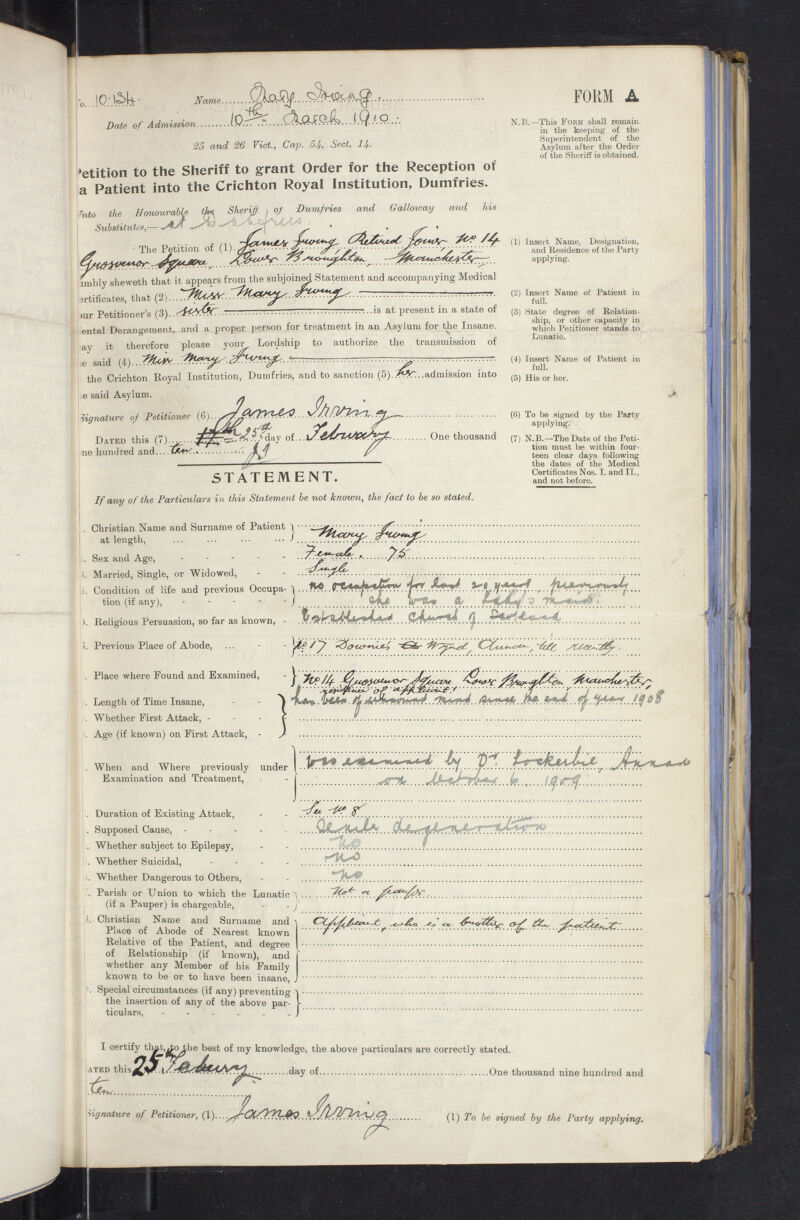 o. 10.134. Name Mary Irving. FORM A
Date of Admission 10th March 1910.
25 and 26 Vict., Cap. 54, Sect. 14.
N.B.—This FORM shall remain
in the keeping of the
Superintendent of the
Asylum after the Order
of the Sheriff is obtained.
Petition to the Sheriff to grant Order for the Reception of
a Patient into the Crichton Royal Institution, Dumfries.
Unto the Honourable the Sheriff of Dumfries and Galloway and his
Substitutes,— at Dumfries.
The Petition of (1) James Irving Retired Joiner, No 14
Grosvenor Square, Lower Broughton, Manchester,
(1) Insert Name, Designation,
and Residence of the Party
applying.
umbly sheweth that it appears from the subjoined Statement and accompanying Medical
ertificates, that (2) Miss Mary Irving
(2) Insert Name of Patient in
full.
our Petitioner's (3) sister is at present in a state of
(3) State degree of Relation-
ship, or other capacity in
which Petitioner stands to
Lunatic.
ental Derangement, and a proper person for treatment in an Asylum for the Insane.
ay it therefore please your Lordship to authorize the transmission of
e said (4) Miss Mary Irving
(4) Insert Name of Patient in
full.
the Crichton Royal Institution, Dumfries, and to sanction (5) her admission into
(5) His or her.
e said Asylum.
Signature of Petitioner (6) James Irving
(6) To be signed by the Party
applying.
DATED this (7) 17th 25th day of Febuary One thousand
ne hundred and ten JI
(7) N.B.—The Date of the Peti-
tion must be within four-
teen clear days following
the dates of the Medical
Certificates Nos. I. and II.,
and not before.
STATEMENT.
If any of the Particulars in this Statement be not known, the fact to be so stated.
. Christian Name and Surname of Patient
at length, ... ... ... ... Mary Irving
. Sex and Age, - - - - - Female. 75
. Married, Single, or Widowed, - - Single
. Condition of life and previous Occupa-
tion (if any), - - - - - no occupation for last 20 years, previously
she was a Lady's maid.
. Religious Persuasion, so far as known, - Established Church of Scotland
. Previous Place of Abode, ... - No 17 Downie's Wynd, Annan, till recently.
. Place where Found and Examined, - No 14 Grosvenor Square Lower Broughton, Manchester,
residence of applicant!
. Length of Time Insane, - - has been of unsound mind since the end of year 1908
. Whether First Attack, - - -
. Age (if known) on First Attack, -
. When and Where previously under
Examination and Treatment, - - was examined by Dr Lockerbie, Annan
on October 6. 1909
. Duration of Existing Attack, - - See No 8
. Supposed Cause, - - - - - Senile degeneration
. Whether subject to Epilepsy, - - no
. Whether Suicidal, - - - - no
. Whether Dangerous to Others, - - no
. Parish or Union to which the Lunatic
(if a Pauper) is chargeable, - - Not a pauper
. Christian Name and Surname and
Place of Abode of Nearest known
Relative of the Patient, and degree
of Relationship (if known), and
whether any Member of his Family
known to be or to have been insane,
Applicant, who is a brother of the patient
. Special circumstances (if any) preventing
the insertion of any of the above par-
ticulars, - - - - - -
I certify that, to the best of my knowledge, the above particulars are correctly stated.
ATED this 25th Febuary day of One thousand nine hundred and
ten
Signature of Petitioner, (1) James Irving (1) To be signed by the Party applying.